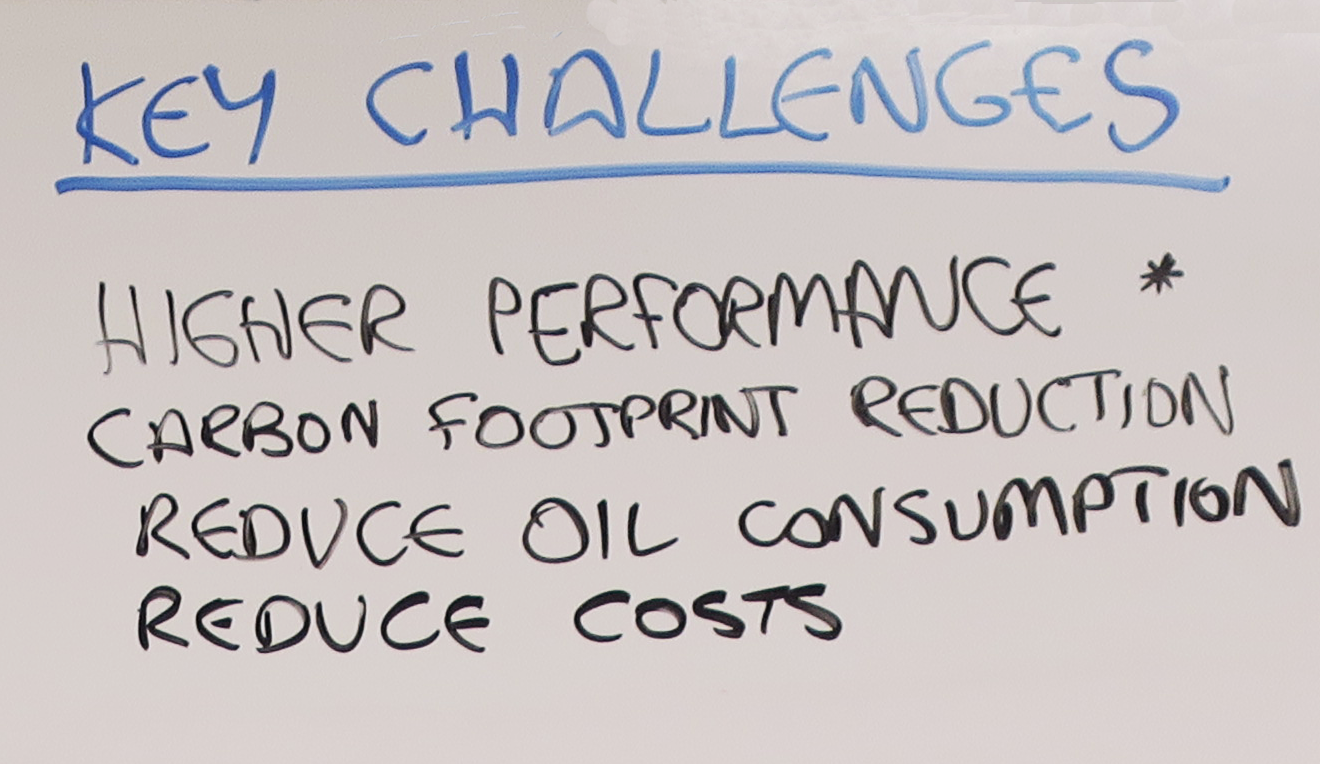 KEY CHALLENGES
HIGHER PERFORMANCE *
CARBON FOOTPRINT REDUCTION
REDUCE OIL CONSUMPTION
REDUCE COSTS